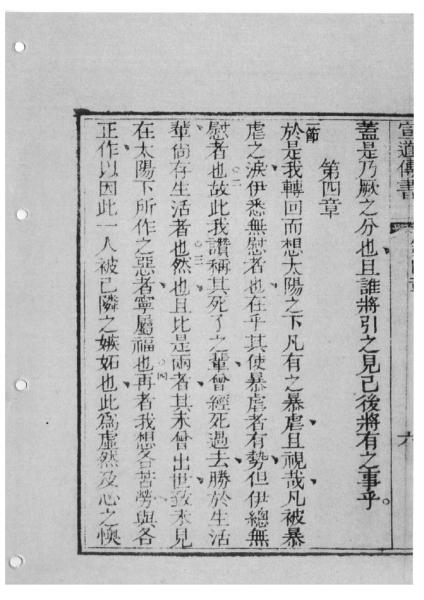 宣道傳書
六
蓋是乃厥之分也且誰將引之見己後將有之事乎。
第四章
一節
於是我轉回而想太陽之下凡有之暴虐且視哉凡被暴
虐之淚伊悉無慰者也在乎其使暴虐者有勢但伊總無
慰者也。二故此我讚稱其死了之輩曾經死過去勝於生活
輩尚存生活者也。三然也且比是兩者其未曾出世致未見
在太陽下所作之惡者寧屬福也。四再者我想各苦勞與各
正作以因此一人被己隣之嫉妬也此為虛然及心之懊